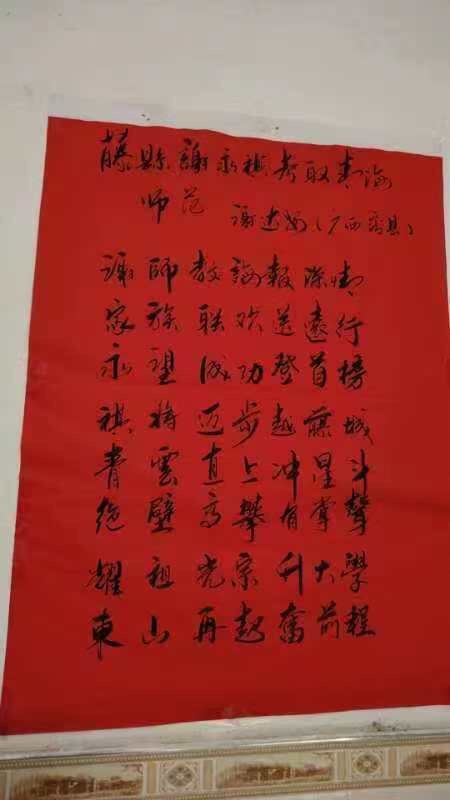 藤縣謝永祺考取青海
师范
谢达（广西容县）
謝師教誨報深情
家族联欢送遠行
永望成功登首榜
祺将迈步越藤城
青雲直上冲星斗
绝壁高攀有掌聲
耀祖光宗升大學
東山再起奮前程